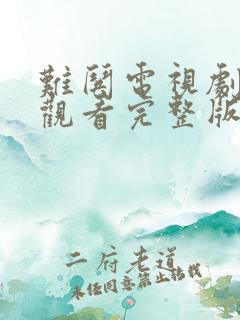 難閱電視劇
觀看完整版
二府老道
未经同意禁止转载